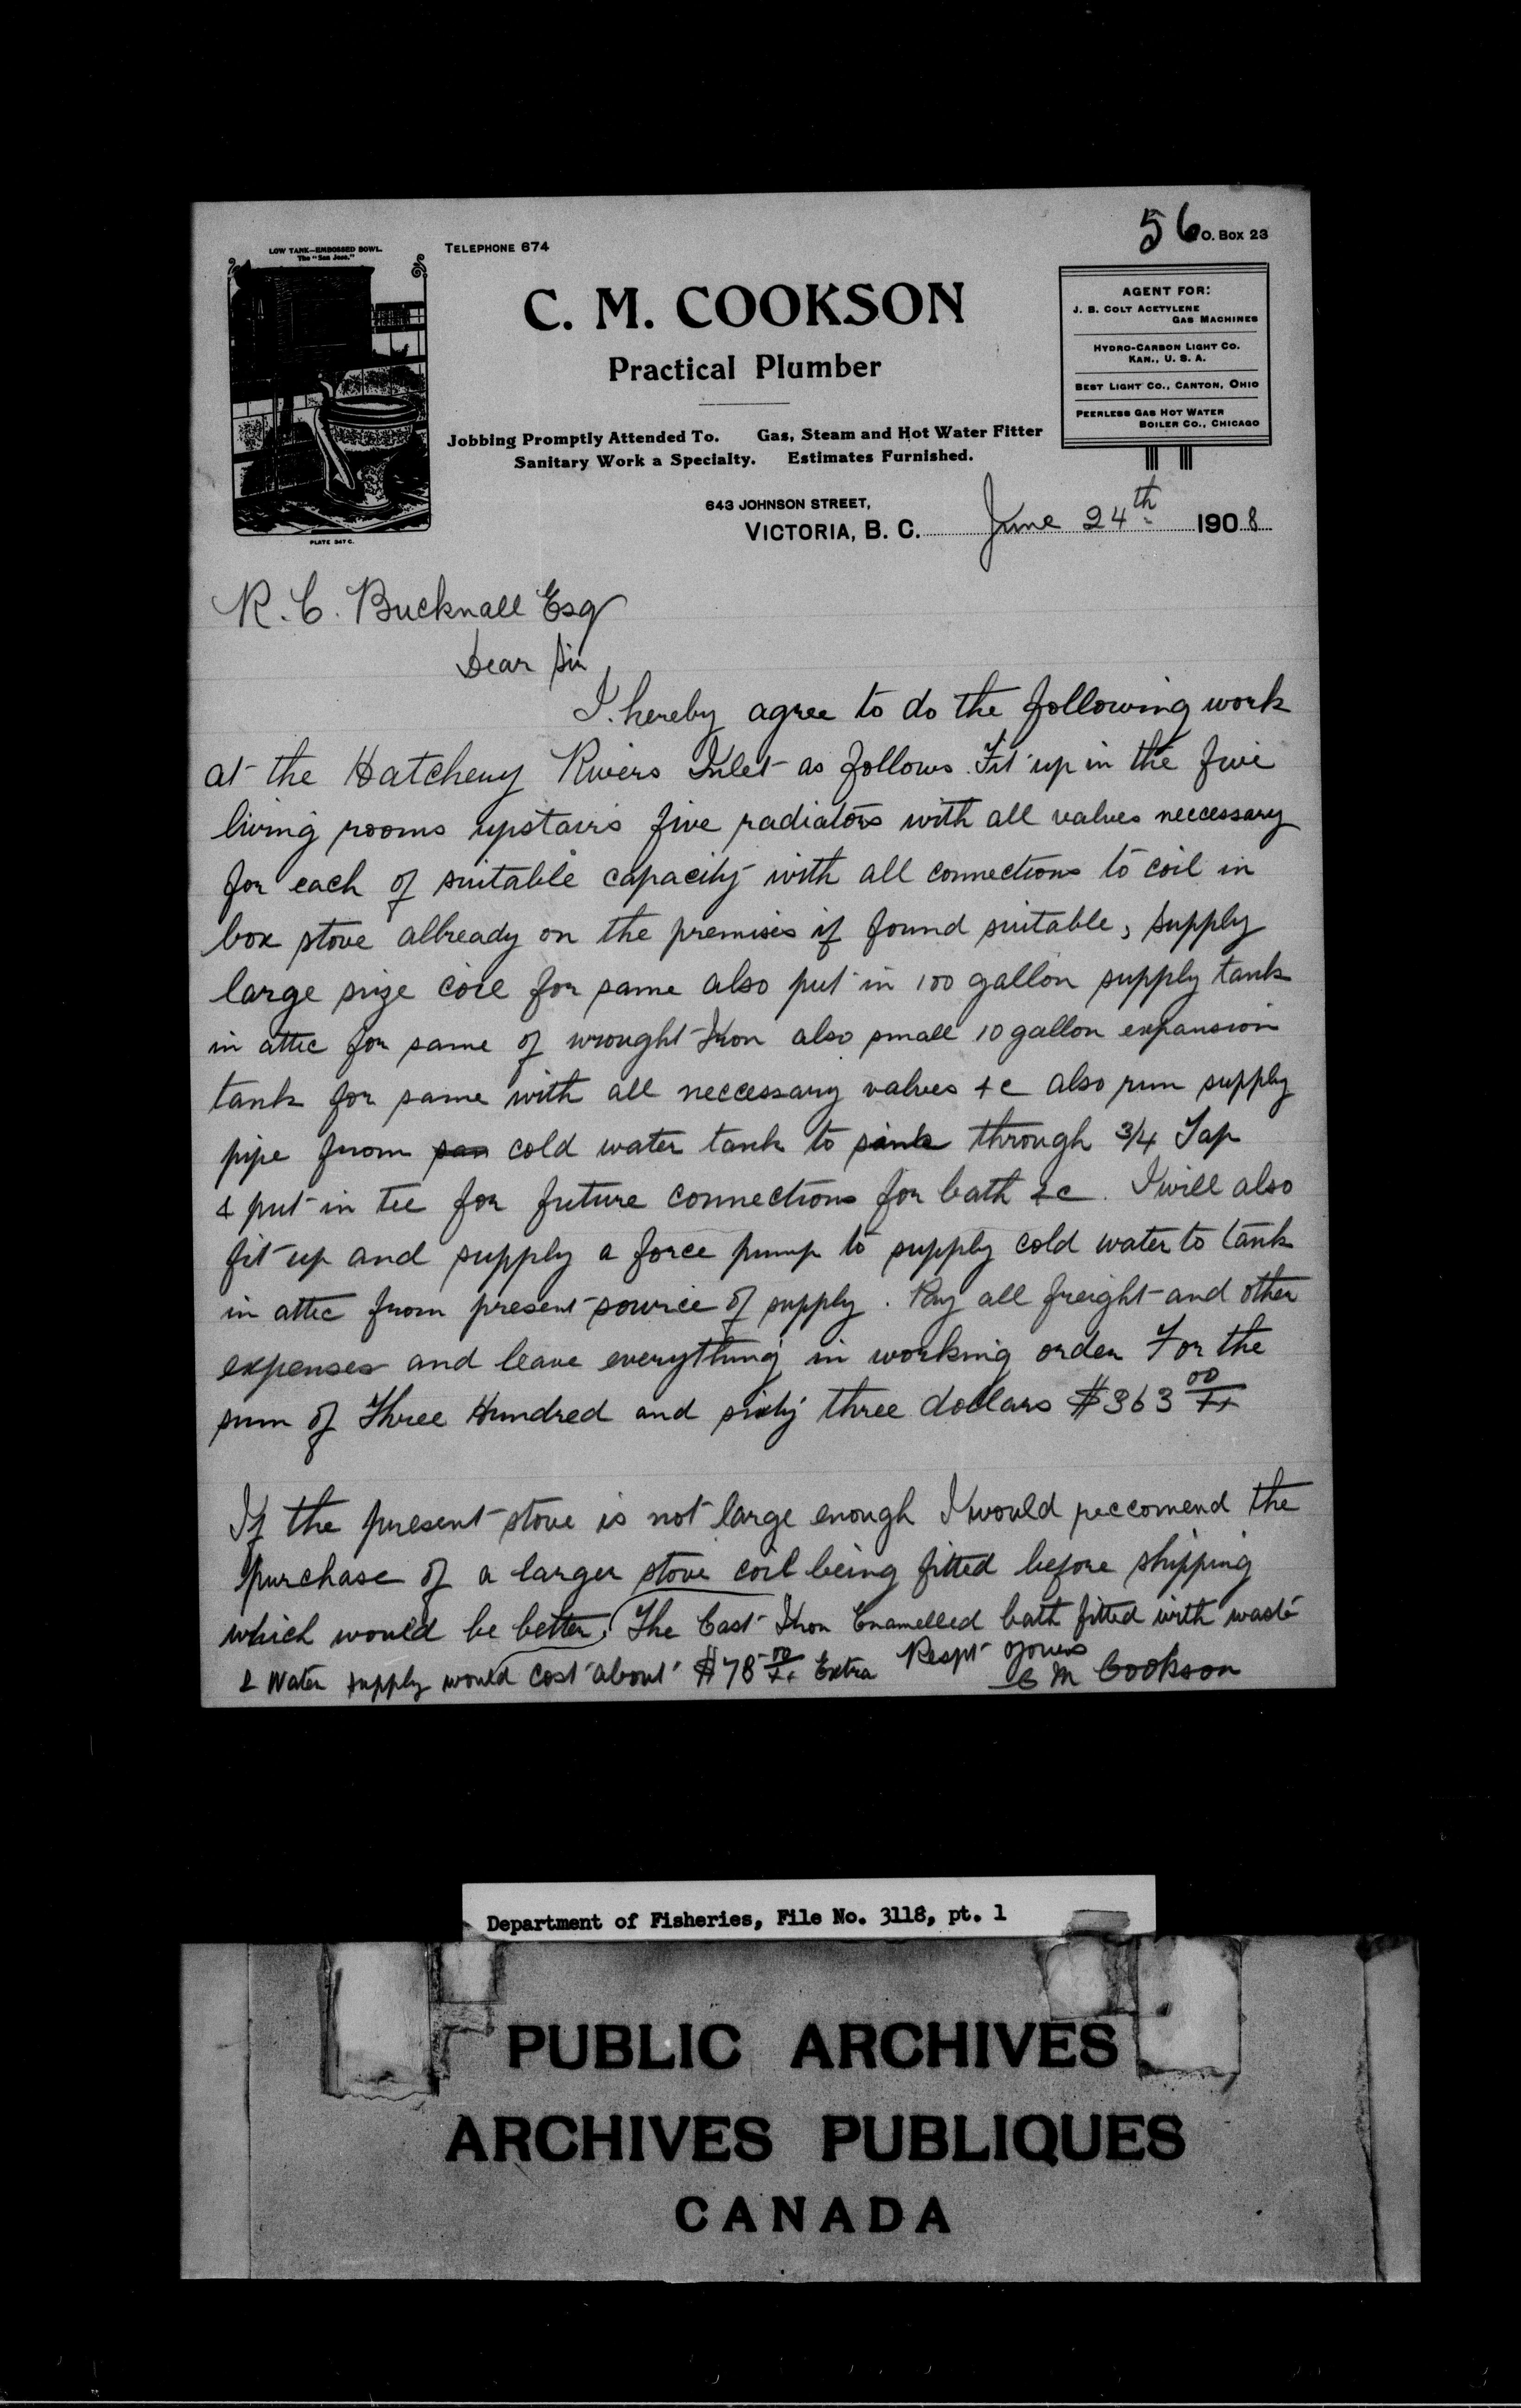 56
O. Box 23
TELEPHONE 674
LOW TANK—EMBOSSED BOWL.
The "San Jose."
PLATE 247 C.
C. M. COOKSON
Practical Plumber
Jobbing Promptly Attended To. Gas, Steam and Hot Water Fitter
Sanitary Work a Specialty. Estimates Furnished.
AGENT FOR:
J. B. COLT ACETYLENE
GAS MACHINES
HYDRO-CARBON LIGHT CO.
KAN., U. S. A.
BEST LIGHT CO., CANTON, OHIO
PEERLESS GAS HOT WATER
BOILER CO., CHICAGO
643 JOHNSON STREET,
VICTORIA, B. C. June 24th 1908
R. C. Bucknall Esq
Dear Sir
I hereby agree to do the following work
at the Hatchery Rivers Inlet as follows. Fit up in the five
living rooms upstairs five radiators with all valves neccessary
for each of suitable capacity with all connections to coil in
box stove allready on the premises if found suitable, supply
large size coil for same also put in 100 gallon supply tank
in attic for same of wrought Iron also small 10 gallon expansion
tank for same with all neccessary valves &c also run supply
pipe from cold water tank to sink through 3/4 Tap
& put in tee for future connections for bath &c. I will also
fit up and supply a force pump to supply cold water to tank
in attic from present source of supply. Pay all freight and other
expenses and leave everything in working order For the
sum of Three Hundred and sixty three dollars $363 00/xx
If the present stove is not large enough I would reccomend the
purchase of a larger stove coil being fitted before shipping
which would be better. The Cast Iron Enamelled bath fitted with waste
& Water supply would cost about $78 00/xx Extra Respt yours
C M Cookson
Department of Fisheries, File No. 3118, pt. 1
PUBLIC ARCHIVES
ARCHIVES PUBLIQUES
CANADA